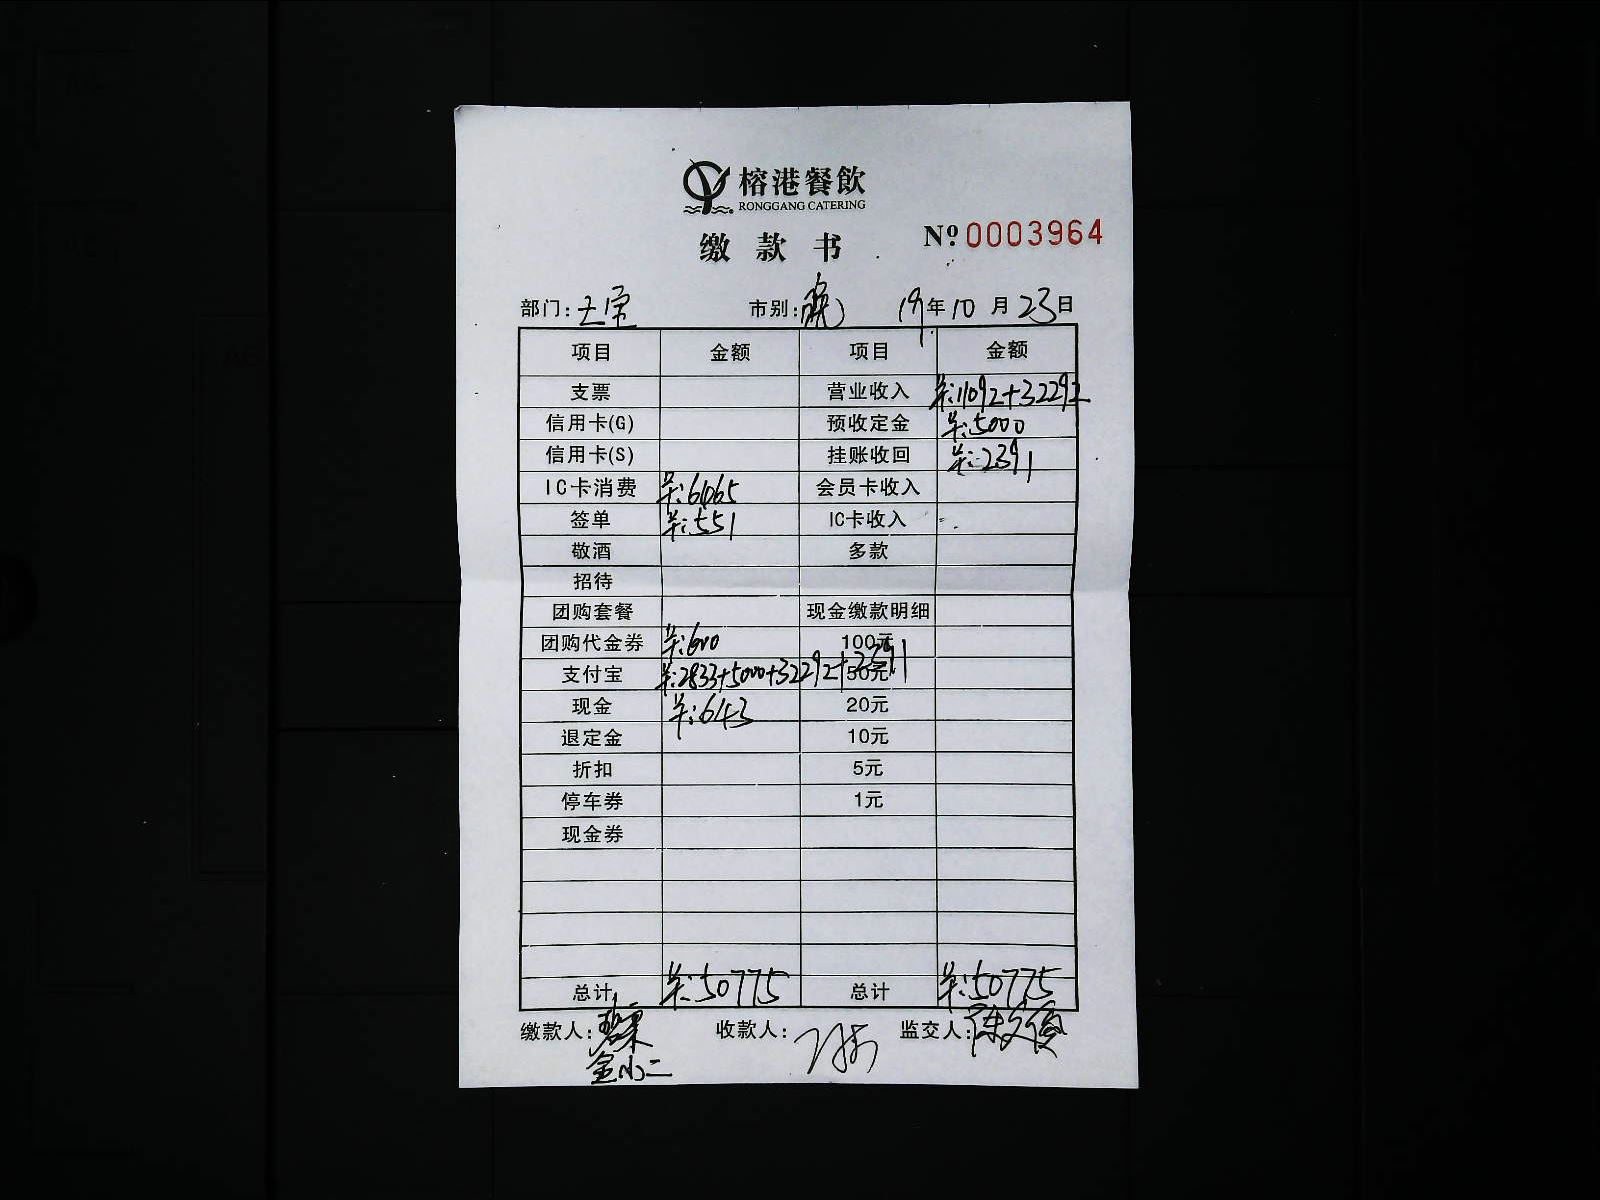 榕港餐飲
RONGGANG CATERING
缴款书 Nº 0003964
部门: 市别:晚 19年10月23日
项目 金额 项目 金额
支票 营业收入 ¥:11092+32292
信用卡(G) 预收定金 ¥:5000
信用卡(S) 挂账收回 ¥:2391
IC卡消费 ¥:6465 会员卡收入
签单 ¥:551 IC卡收入
敬酒 多款
招待
团购套餐 现金缴款明细
团购代金券 ¥:600 100元
支付宝 ¥:2833+5000+32292+2391 50元
现金 ¥:643 20元
退定金 10元
折扣 5元
停车券 1元
现金券
总计 ¥:50775 总计 ¥:50775
缴款人: 收款人: 监交人: